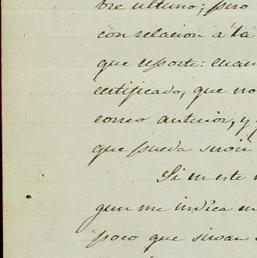 bre ultimo; pero
con relacion á la
que reporte: cuan
certificado, que no
correo anterior, y
que pueda
Si en este
gun me indica
poco que sirvan